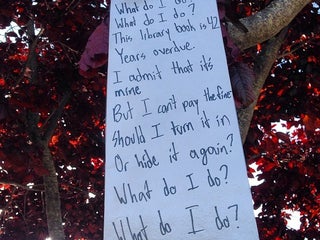 What do I do?
What do I do?
This library book is 42
Years overdue.
I admit that it's
mine
But I can't pay the fine
Should I turn it in
Or hide it again?
What do I do?
What do I do?